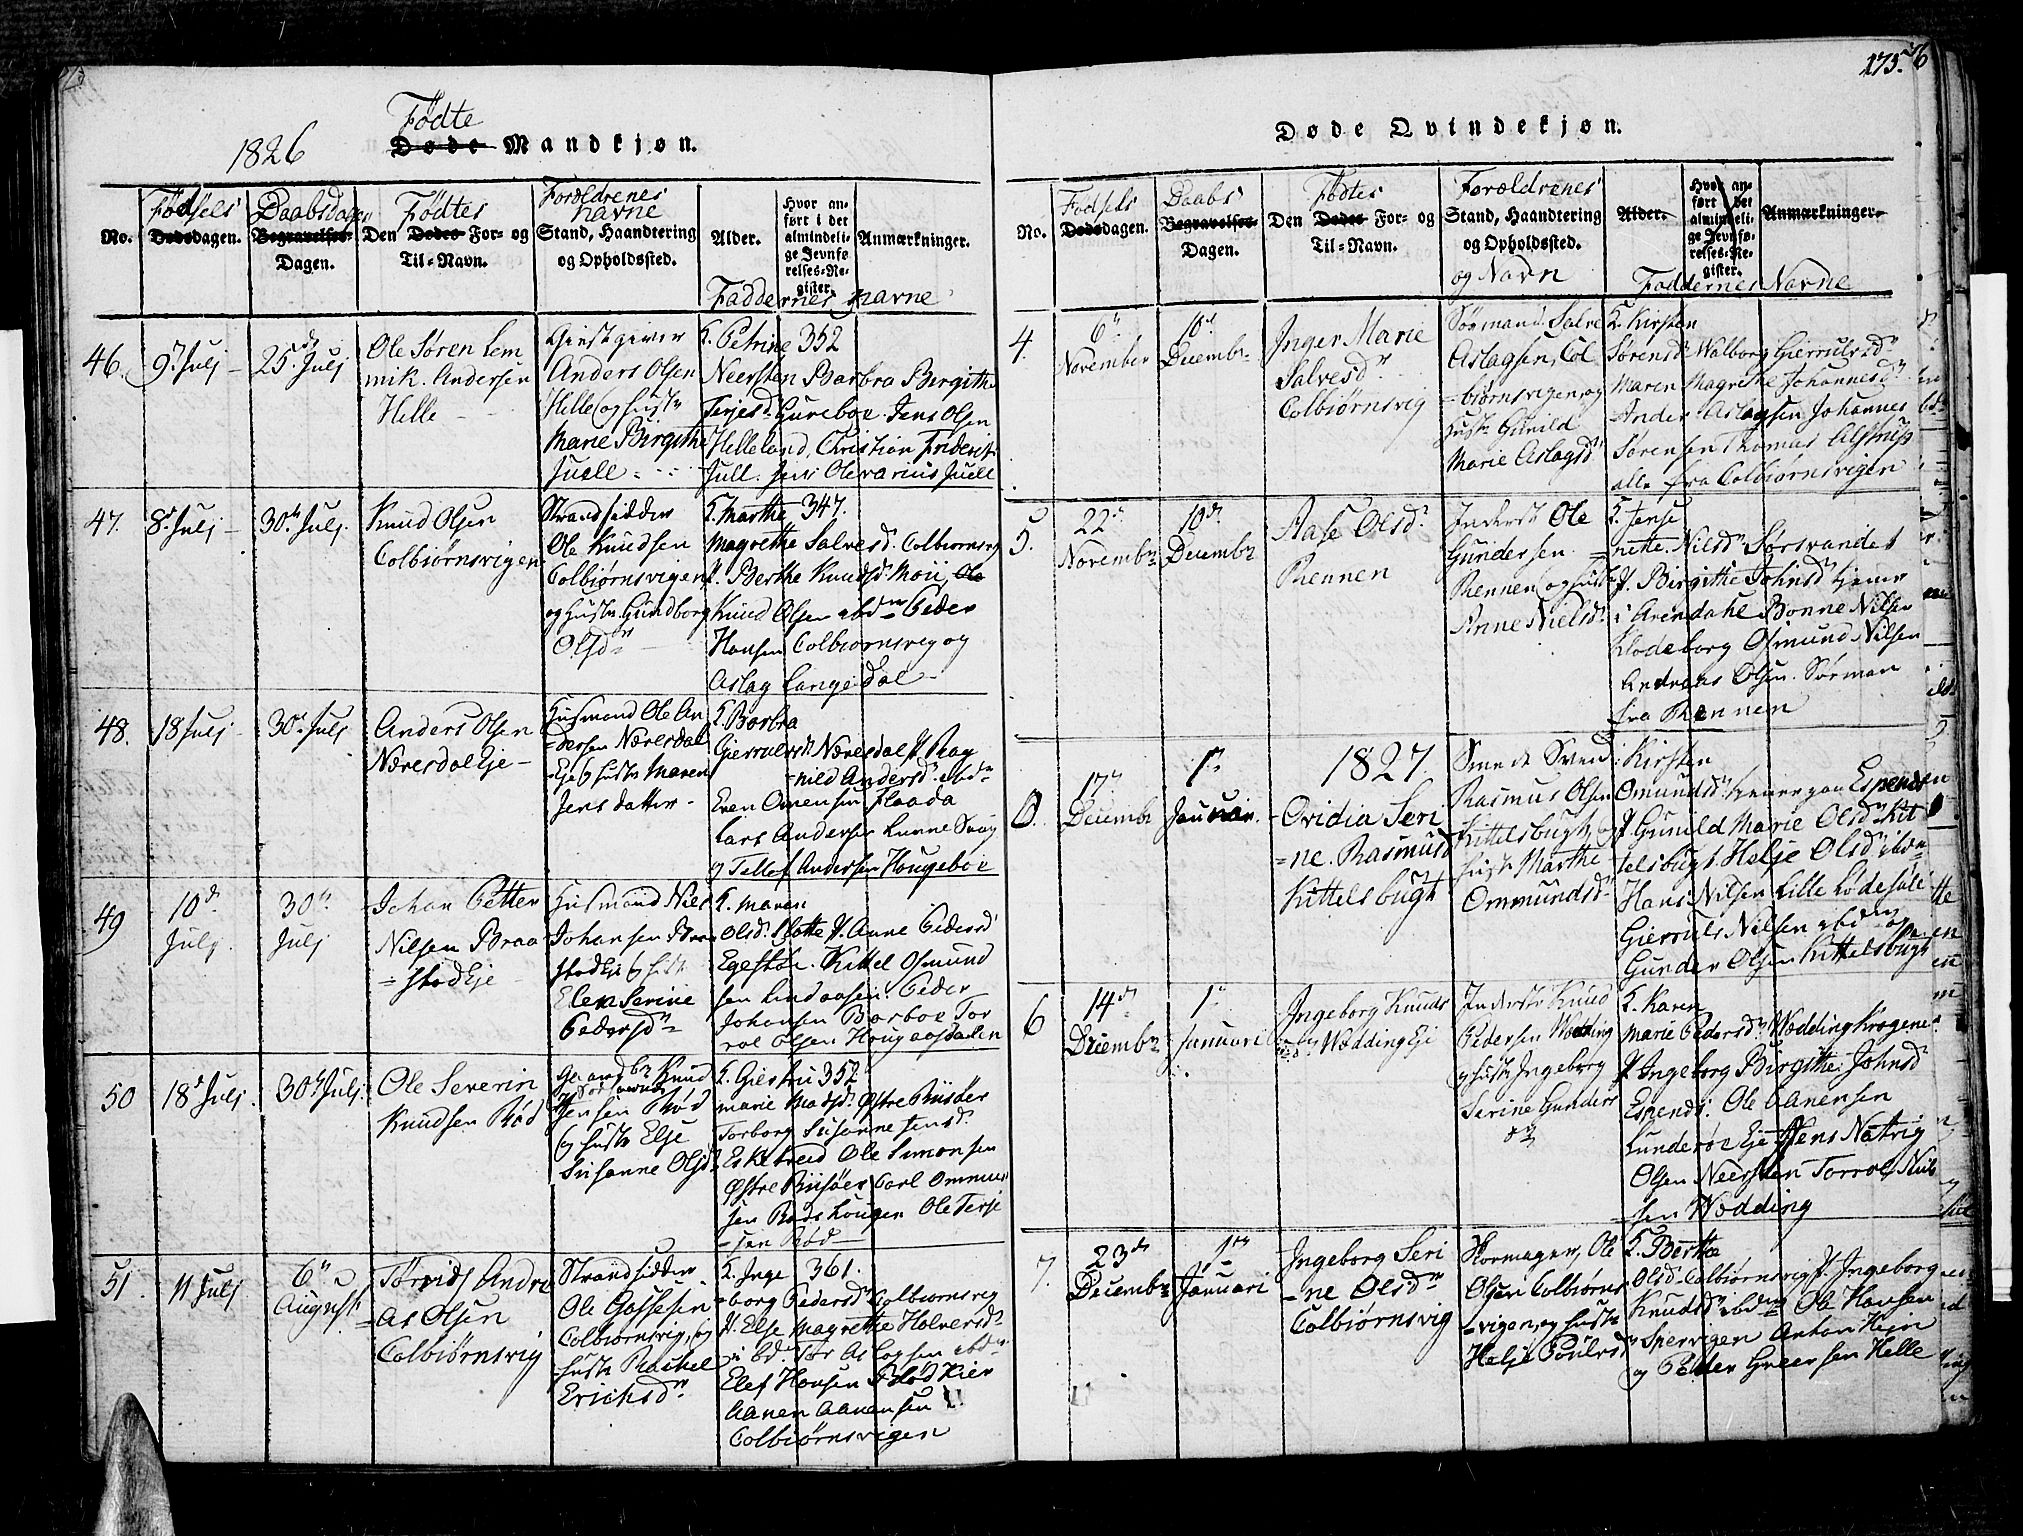 175.
1826
Fødte
Døde Mandkjøn.
No.
Fødsels
Dødsdagen.
Daabsdagen
Begravelses-
Dagen.
Fødtes
Den Dødes For- og
Til-Navn.
Forældrenes
navne
Stand, Haandtering
og Opholdssted.
Alder.
Hvor an-
ført i det
almindeli-
ge Jevnfø-
relses-Re-
gister.
Anmærkninger.
Faddernes navne
46.
9de Julj
25de Julj
Ole Søren Lem
mik. Andersen
Helle
Giestgiver
Anders Olsen
Helle og hustr
Marie Birgithe
Juell
K. Petrine 352
Neersten Barbra Birgithe
Terjesd. Gureboe. Jens Olsen
Helleland, Christian Frideric
Jull. Jens Olevarius Juell
47.
8de Julj
30te Julj.
Knud Olsen
Colbiørnsvigen
Strandsidder
Ole Knudsen
Colbiørnsvigen
og hustr. Gundborg
Olsdr
K. Marthe 347.
Magrethe Salvesd. Colbiørnsvg
P. Berthe Knudsd. Moii, Ole
Knud Olsen ibdm Peder
Hansen Colbiørnsveg og
Aslag Langedal
48.
18 Julj
30te Julj
Anders Olsen
Næresdal Eje
Husmand Ole An
=dersen Næresdal
Eje & hustr Maren
Jens datter
K. Barbra
Gierrulsd. Næresdal P. Rag
=nild Andersd. ibdm
Even Omensen Flaada
Lars Andersen Lunne
& Tellef Andersen Hougeboe
49
10de
Julj.
30te
Julj
Johan Petter
Nilsen Braa
=stad Eje
Husmand Nils
Johansen Braa
stad Eje & hustr
Elen Serine
Pedersdr
K. Maren
Olsd. Slotte P. Anne Pedersd
Egestøe. Kittel Osmund
sen Lindaasen. Peder
Johansen Barboe Tor
rol Olsen Hougaasdalen
50
18de Julj.
30te Julj.
Ole Severin
Knudsen Rød
Knud
Jensen Rød
& hustr Else
Susanne Olsd
K. Giestru 352
Marie Madsd. Østre Riisøer
Torborg Susanne Jensd.
Eskebreid Ole Simonsen
Østre Riisøer Carl Ommun
sen Røds Lougen Ole Terje
=sen Rød
51
11 Julj
6te
August
Tørrids Andre
as Olsen
Colbiørnsvig
Strandsidder
Ole Gossesen
Colbiørnsvig, og
hustr Rachel
Ericksdr
K. Inge 361.
=borg Pedersd Colbiornsvig
P. Else Magrethe Halversd
ibd. Tør Aslagsen ibdm
Elef Hansen Rød Kier
Aanen Aanensen
Colbiørnsvigen
Døde Qvindekjøn.
No.
Fødsels
Dødsdagen.
Daabs
Begravelses-
Dagen.
Fødtes
Den Dødes For- og
Til-Navn.
Forældrenes
Stand, Haandtering
og Opholdssted.
og Navn
Alder.
Hvor an-
ført i det
almindeli-
ge Jevnfø-
relses-Re-
gister.
Anmærkninger.
Faddernes Navne
4.
6te
November
10de
Decembr
Inger Marie
Salvesdr
Colbiørnsvig
Sømand Salve
Aslagsen, Col
=biørnsvigen, og
hustr Gunild
Marie Aslagsd
K. Kirsten
Sørensd. Walborg Gierrulsd
Maren Magrethe Johannesd
Ander Aslagsen Johannes
Sørensen Thomas Alstrup
alle fra Colbiørnsvigen
5.
22de
Novembr
10de
Decembr
Aase Olsd
Rennen
Inderst Ole
Gundersen
Rennen og hustr
Anne Nielsd.
K. Jense
nette Nilsd. Sørsvandet
P. Birgithe Johnsd hjeme
i Arendahl Bonne Nilsen
Klodeborg Osmund Nilsen
Andreas Olsen Sørman
fra Rennen
1827.
6.
17de
Decembr
1te
Januari.
Ovidia Seri
=ne Rasmusd
Kittelsbugt
Smede Svend
Rasmus Olsen
Kittelsbugt, og
hustr Marthe
Ommundsd
Kirsten
Omundsd. hjeme paa Espenes
P. Gunild Marie Olsd. Kit
telsbugt Helje Olsd ibdm
Hans Nilsen Lille Lodesøle
Gierruls Nilsen ibdm og
Gunder Olsen Kittelsbugt
6
14de
Decembr
1te
Januari
Ingeborg Knuds
Wodding Eje
Inderste Knud
Pedersen Wodding
& hustr Ingeborg
Serine Gunders
dr
K. Karen
Marie Pedersd. Wodding Krogene
P. Ingeborg Birgithe Johnsd
Espends. Ole Aanensen
Lunderøe Eje Jens Natvig
Olsen Neersten Torrol Nil
sen Wodding
7.
23de
Decembr
1te
Januari
Ingeborg Seri
=ne Olsdr
Colbiørnsvig
Skomager, Ole
Olsen Colbiørns
=vigen, og hustr
Helje Poulsd
K. Berthe
Olsd. Colbiørnsvig P. Ingeborg
Knudsd ibdm Ole Hansen
Spervigen Anton Hejn
og Peder Greersen Helle